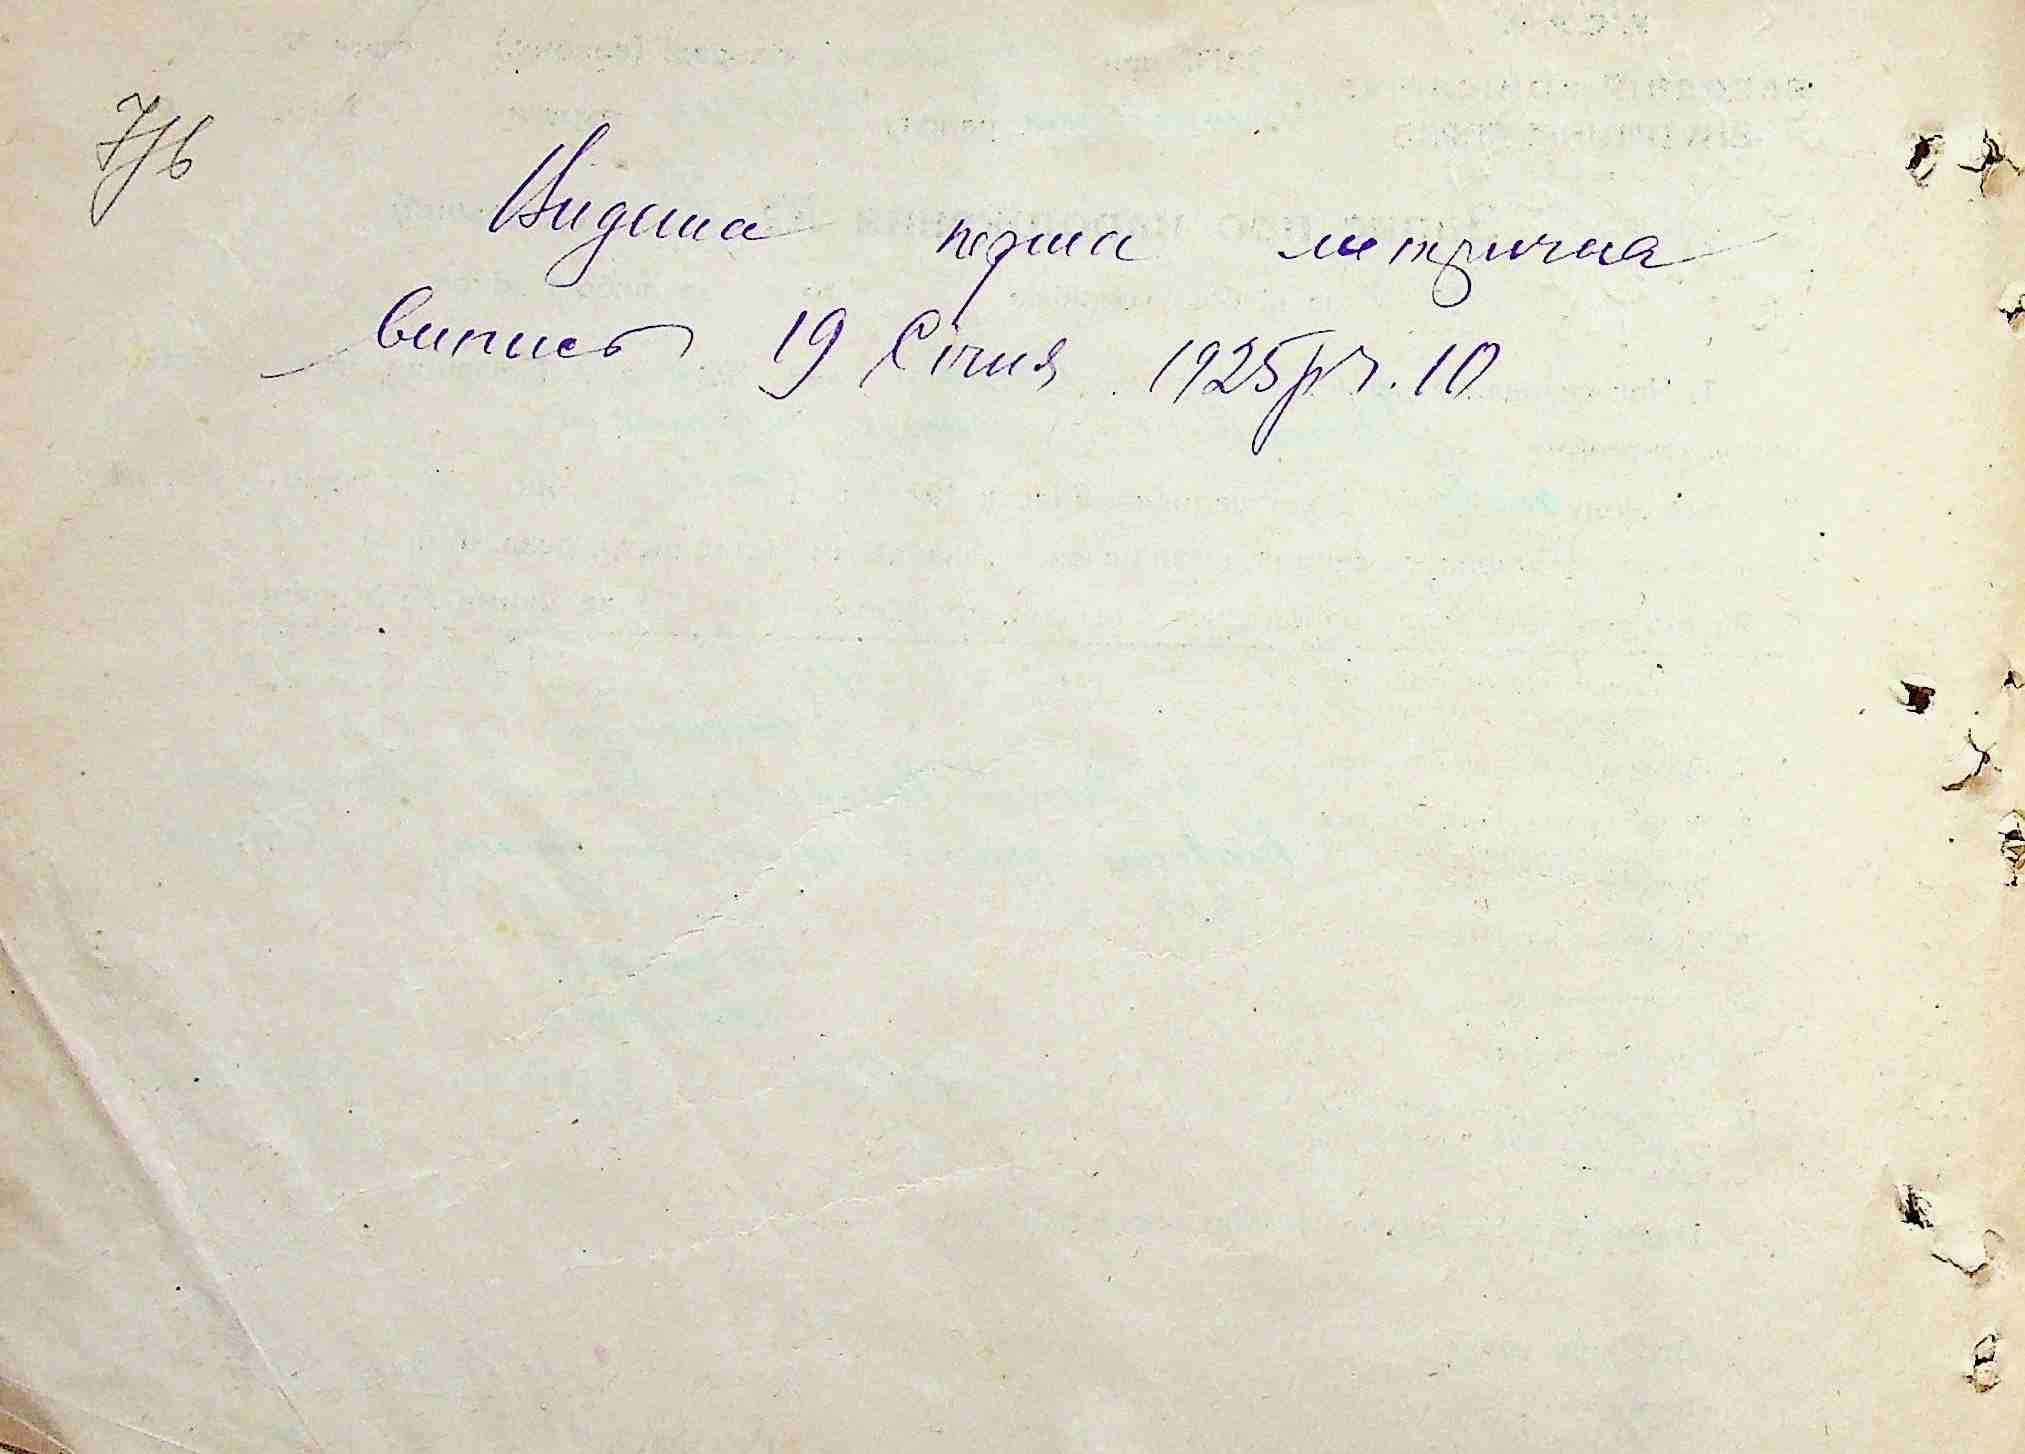 7/в
Видана перша метрична
випись 19 Січня 1925 р. ч. 10